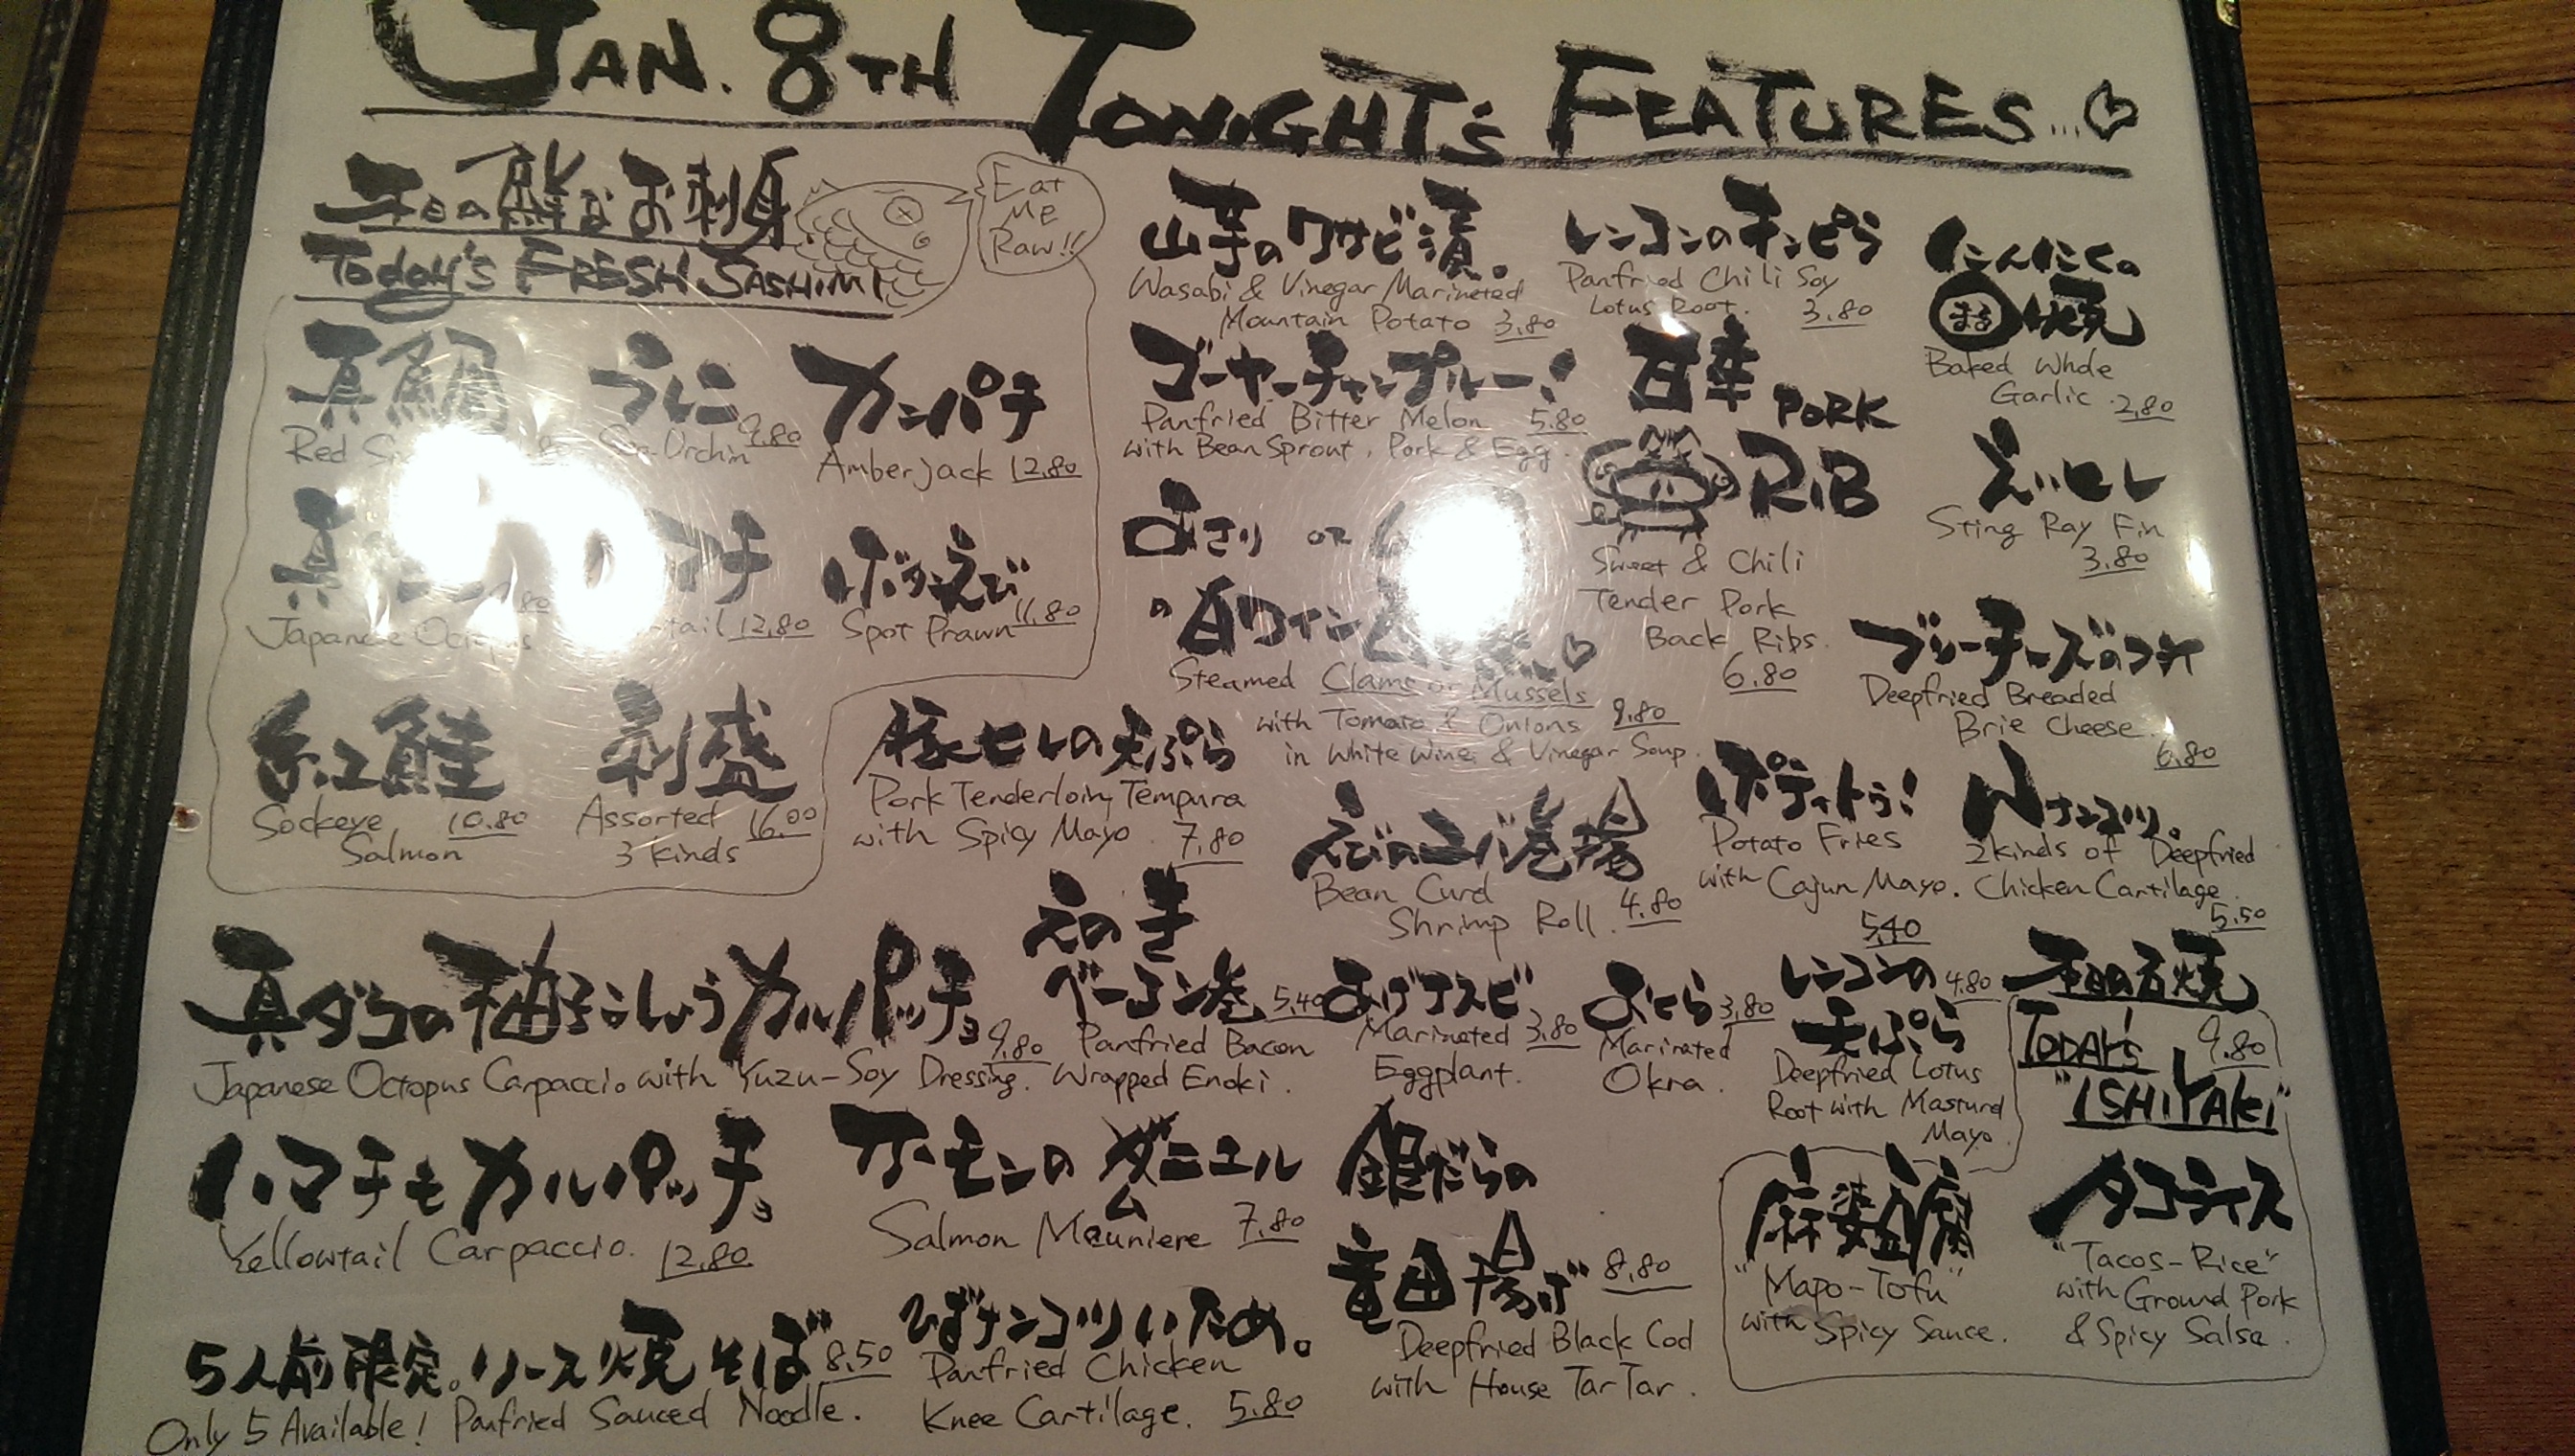 JAN. 8TH TONIGHT'S FEATURES...
本日の鮮なお刺身
TODAY'S FRESH SASHIMI
Eat
ME
Raw!!
真鯛
Red
うに
9.80
Urchin
カンパチ
Amberjack 12.80
真
Japanese Octopus
マチ
tail 12.80
ボタンえび
Spot Prawn 11.80
紅鮭
Sockeye 10.80
Salmon
刺盛
Assorted 16.00
3 kinds
山芋のワサビ漬。
Wasabi & Vinegar Marineted
Mountain Potato 3.80
レンコンのキンピラ
Panfried Chili Soy
Lotus Root. 3.80
にんにくの
まる焼
Baked Whole
Garlic 2.80
ゴーヤーチャンプルー!
Panfried Bitter Melon 5.80
with Bean Sprout, Pork & Egg.
甘辛 PORK
RIB
Sweet & Chili
Tender Pork
Back Ribs.
6.80
えいヒレ
Sting Ray Fin
3.80
あさり OR
の白ワイン
Steamed Clams or Mussels
with Tomato & Onions 9.80
in White Wine & Vinegar Soup.
ブリーチーズのフライ
Deepfried Breaded
Brie Cheese.
6.80
豚ヒレの天ぷら
Pork Tenderloin Tempura
with Spicy Mayo. 7.80
えびのユバ巻揚
Bean Curd
Shrimp Roll. 4.80
ポティトゥ!
Potato Fries
with Cajun Mayo.
5.40
Wナンコツ。
2 kinds of Deepfried
Chicken Cartilage.
5.50
真ダコの柚子こしょうカルパッチョ
9.80
Japanese Octopus Carpaccio with Yuzu-Soy Dressing.
えのき
ベーコン巻 5.40
Panfried Bacon
Wrapped Enoki.
あげナスビ
Marineted 3.80
Eggplant.
おくら 3.80
Marinated
Okra.
レンコンの 4.80
天ぷら
Deepfried Lotus
Root with Masturd
Mayo.
本日の石焼
TODAY'S 9.80
"ISHIYAKI"
麻婆豆腐
"Mapo-Tofu"
with Spicy Sauce.
タコライス
"Tacos-Rice"
with Ground Pork
& Spicy Salsa.
ハマチもカルパッチョ
Yellowtail Carpaccio. 12.80
サーモンのムニエル
Salmon Meuniere 7.80
銀だらの
竜田揚げ 8.80
Deepfried Black Cod
with House TarTar.
5人前限定。ソース焼そば 8.50
Only 5 Available! Panfried Sauced Noodle.
ひざナンコツいため。
Panfried Chicken
Knee Cartilage. 5.80